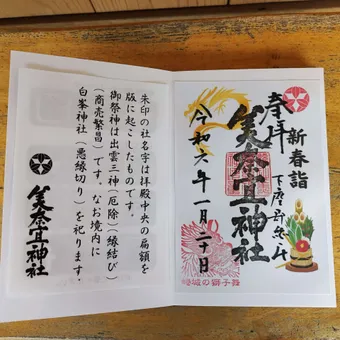 新春詣
奉拝
下座郡
美奈宜神社
令和六年一月二十日
蜷城の獅子舞
朱印の社名字は拝殿中央の扁額を
版に起こしたものです。
御祭神は出雲三神(厄除)(縁結び)
(商売繁昌)です。なお境内に
白峯神社(悪縁切り)を祀ります。
美奈宜神社